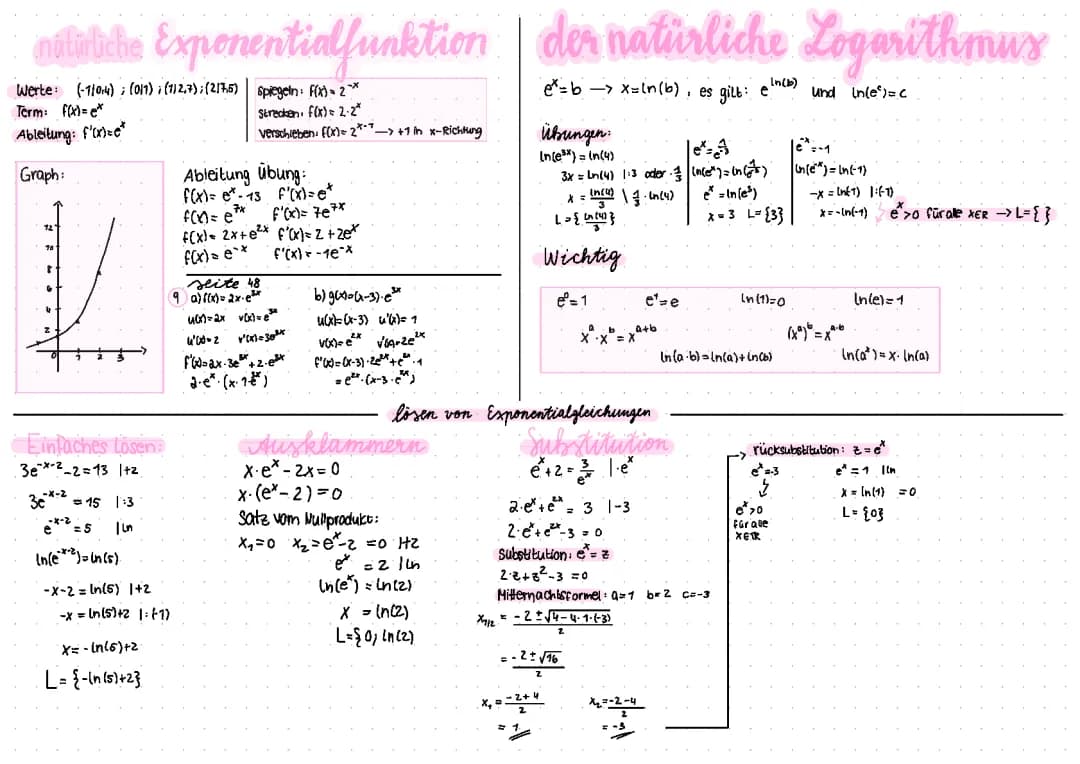 natürliche Exponentialfunktion
Werte: (-1/0,4) ; (0/1) ; (1/2,7) ; (2/7,5)
Term: f(x)=e^x
Ableitung: f'(x)=e^x
Spiegeln: f(x) = 2^-x
Strecken: f(x) = 2·2^x
Verschieben: f(x) = 2^x-1 → +1 in x-Richtung
Graph:
12
10
8
6
4
2
0 1 2 3
Ableitung Übung:
f(x)= e^x - 13 f'(x)=e^x
f(x)= e^7x f'(x)= 7e^7x
f(x)= 2x+e^2x f'(x)= 2+2e^x
f(x)= e^-x f'(x)= -1e^-x
Seite 48
9 a) f(x)= 2x·e^3x
u(x)=2x v(x)=e^3x
u'(x)=2 v'(x)=3e^3x
f'(x)=2x·3e^3x+2·e^3x
b) g(x)=(x-3)·e^2x
u(x)=(x-3) u'(x)=1
v(x)=e^2x v'(x)=2e^2x
f'(x)=(x-3)·2e^2x+e^2x·1
der natürliche Logarithmus
e^x=b → x=ln(b), es gilt: e^ln(b) und ln(e^c)=c
Übungen:
ln(e^3x)=ln(4)
3x=ln(4) |:3 oder ·1/3
x = ln(4)/3 \ 1/3·ln(4)
L={ln(4)/3}
e^x=ln(e^3)
x=3 L={3}
e^-x=-1
ln(e^-x)=ln(-1)
-x=ln(-1) |:(-1)
x=-ln(-1) e^x>0 für alle x∈R → L={ }
Wichtig
e^0=1 e^1=e ln(1)=0 ln(e)=1
x^a·x^b=x^a+b (x^a)^b=x^a·b
ln(a·b)=ln(a)+ln(b) ln(a^x)=x·ln(a)
lösen von Exponentialgleichungen
Einfaches Lösen:
3e^-x-2-2=13 |+2
3e^-x-2=15 |:3
e^-x-2=5 |ln
ln(e^-x-2)=ln(5)
-x-2=ln(5) |+2
-x=ln(5)+2 |:(-1)
x=-ln(5)+2
L={-ln(5)+2}
Ausklammern
x·e^x-2x=0
x·(e^x-2)=0
Satz vom Nullprodukt:
x₁=0 x₂=e^x-2=0 |+2
e^x=2 |ln
ln(e^x)=ln(2)
x=ln(2)
L={0; ln(2)}
Substitution
e^x+2=3/e^x |·e^x
2·e^x+e^2x=3 |-3
2·e^x+e^2x-3=0
Substitution: e^x=z
2·z+z²-3=0
Mitternachtsformel: a=1 b=2 c=-3
x₁/₂ = -2±√4-4·1·(-3) / 2
= -2±√16 / 2
x₁ = -2+4 / 2 x₂ = -2-4 / 2
= 1 = -3
rücksubstitution: z=e^x
e^x=-3 e^x=1 |ln
x=ln(1) =0
e^x>0 L={0}
für alle
x∈R